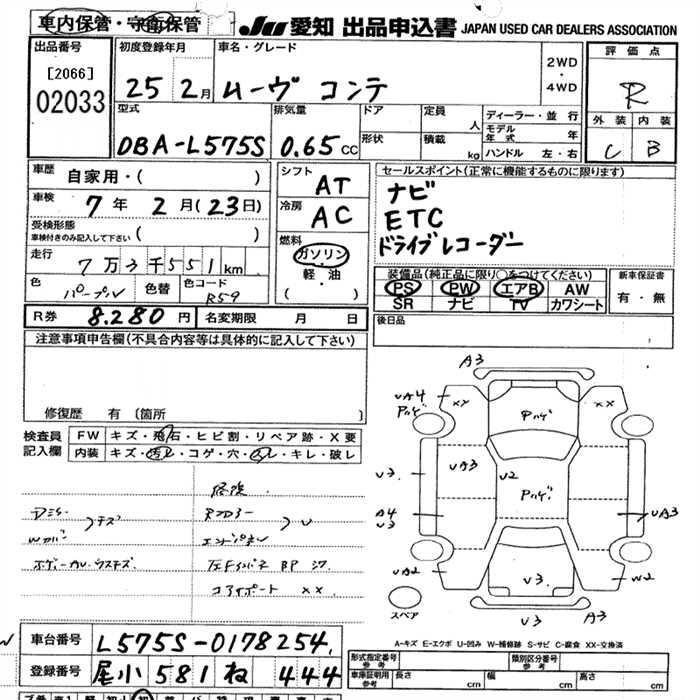 車内保管・守衛保管 JU 愛知 出品申込書 JAPAN USED CAR DEALERS ASSOCIATION
出品番号 [2066] 02033
初度登録年月 25 2月
車名・グレード ムーヴ コンテ
2WD・4WD
評価点 R
外装 内装
C B
型式 DBA-L575S
排気量 0.65 CC
ドア 定員 人
形状 積載 kg
ディーラー・並行
モデル年式 年
ハンドル 左・右
車歴 自家用・( )
車検 7年 2月(23日)
受検形態 車検付きのみ記入して下さい ( )
走行 7万3千551km
色 パープル 色替 色コード R59
シフト AT
冷房 AC
燃料 ガソリン・軽・油 ( )
セールスポイント(正常に機能するものに限ります)
ナビ
ETC
ドライブレコーダー
装備品(純正品に限り○をつけてください)
PS PW エアB AW
SR ナビ TV カワシート
新車保証書 有・無
後日品
R券 8.280円 名変期限 月 日
注意事項申告欄(不具合内容等は具体的に記入して下さい)
修復歴 有 〔箇所 〕
検査員記入欄
FW キズ・飛石・ヒビ割・リペア跡・X要
内装 キズ・汚レ・コゲ・穴・スレ・キレ・破レ
Rフロアー
エンドパネル
左Fインパネ BP
コアサポート XX
A3
UA4 XX XX
U3 UA3 U2
A4 U3 UA3
UA2 U3 W2
U3 A3
スペア
A-キズ E-エクボ U-凹み W-補修跡 S-サビ C-腐食 XX-交換済
車台番号 L575S-0178254
登録番号 尾小 581 ね 444
形式指定番号 参考 類別区分番号 参考
車庫証明用 参考 長さ cm 幅 cm 高さ cm